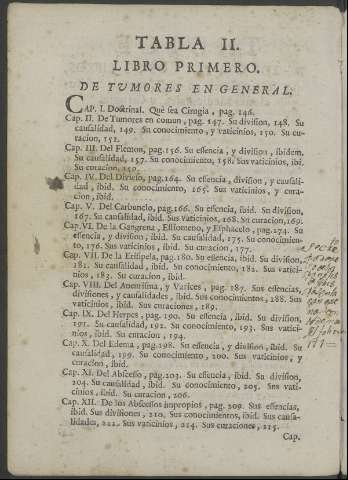 TABLA II.
LIBRO PRIMERO.
DE TVMORES EN GENERAL.
CAP. I. Doctrinal. Què sea Cirugia, pag. 146.
Cap. II. De Tumores en comun, pag. 147. Su division, 148. Su
causalidad, 149. Su conocimiento, y vaticinios, 150. Su cu-
racion, 152.
Cap. III. Del Flemon, pag. 156. Su essencia, y division, ibidem.
Su causalidad, 157. Su conocimiento, 158. Sus vaticinios, ibi.
Su curacion, 159.
Cap. IV. Del Divieso, pag. 164. Su essencia, division, y causali-
dad, ibid. Su conocimiento, 165. Sus vaticinios, y cura-
cion, ibid.
Cap. V. Del Carbunclo, pag. 166. Su essencia, ibid. Su division,
167. Su causalidad, ibid. Sus vaticinios, 168. Su curacion, 169.
Cap. VI. De la Gangrena, Estiomeno, y Esphacelo, pag. 174. Su
essencia, y division, ibid. Su causalidad, 175. Su conocimien-
to, 176. Sus vaticinios, ibid. Su curacion, 177.
Cap. VII. De la Erisipela, pag. 180. Su essencia, ibid. Su division,
181. Su causalidad, ibid. Su conocimiento, 182. Sus vatici-
nios, 183. Su curacion, ibid.
Cap. VIII. Del Aneurisma, y Varices, pag. 187. Sus essencias,
divisiones, y causalidades, ibid. Sus conocimientos, 188. Sus
vaticinios, ibid. Sus curaciones, 189.
Cap. IX. Del Herpes, pag. 190. Su essencia, ibid. Su division,
191. Su causalidad, 192. Su conocimiento, 193. Sus vatici-
nios, ibid. Su curacion, 194.
Cap. X. Del Edema, pag. 198. Su essencia, y division, ibid. Su
causalidad, 199. Su conocimiento, 200. Sus vaticinios, y
curacion, ibid.
Cap. XI. Del Abscesso, pag. 203. Su essencia, ibid. Su division,
204. Su causalidad, ibid. Su conocimiento, 205. Sus vati-
cinios, ibid. Su curacion, 206.
Cap. XII. De los Abscessos impropios, pag. 209. Sus essencias,
ibid. Sus divisiones, 210. Sus conocimientos, ibid. Sus causa-
lidades, 211. Sus vaticinios, 214. Sus curaciones, 215.
Cap.